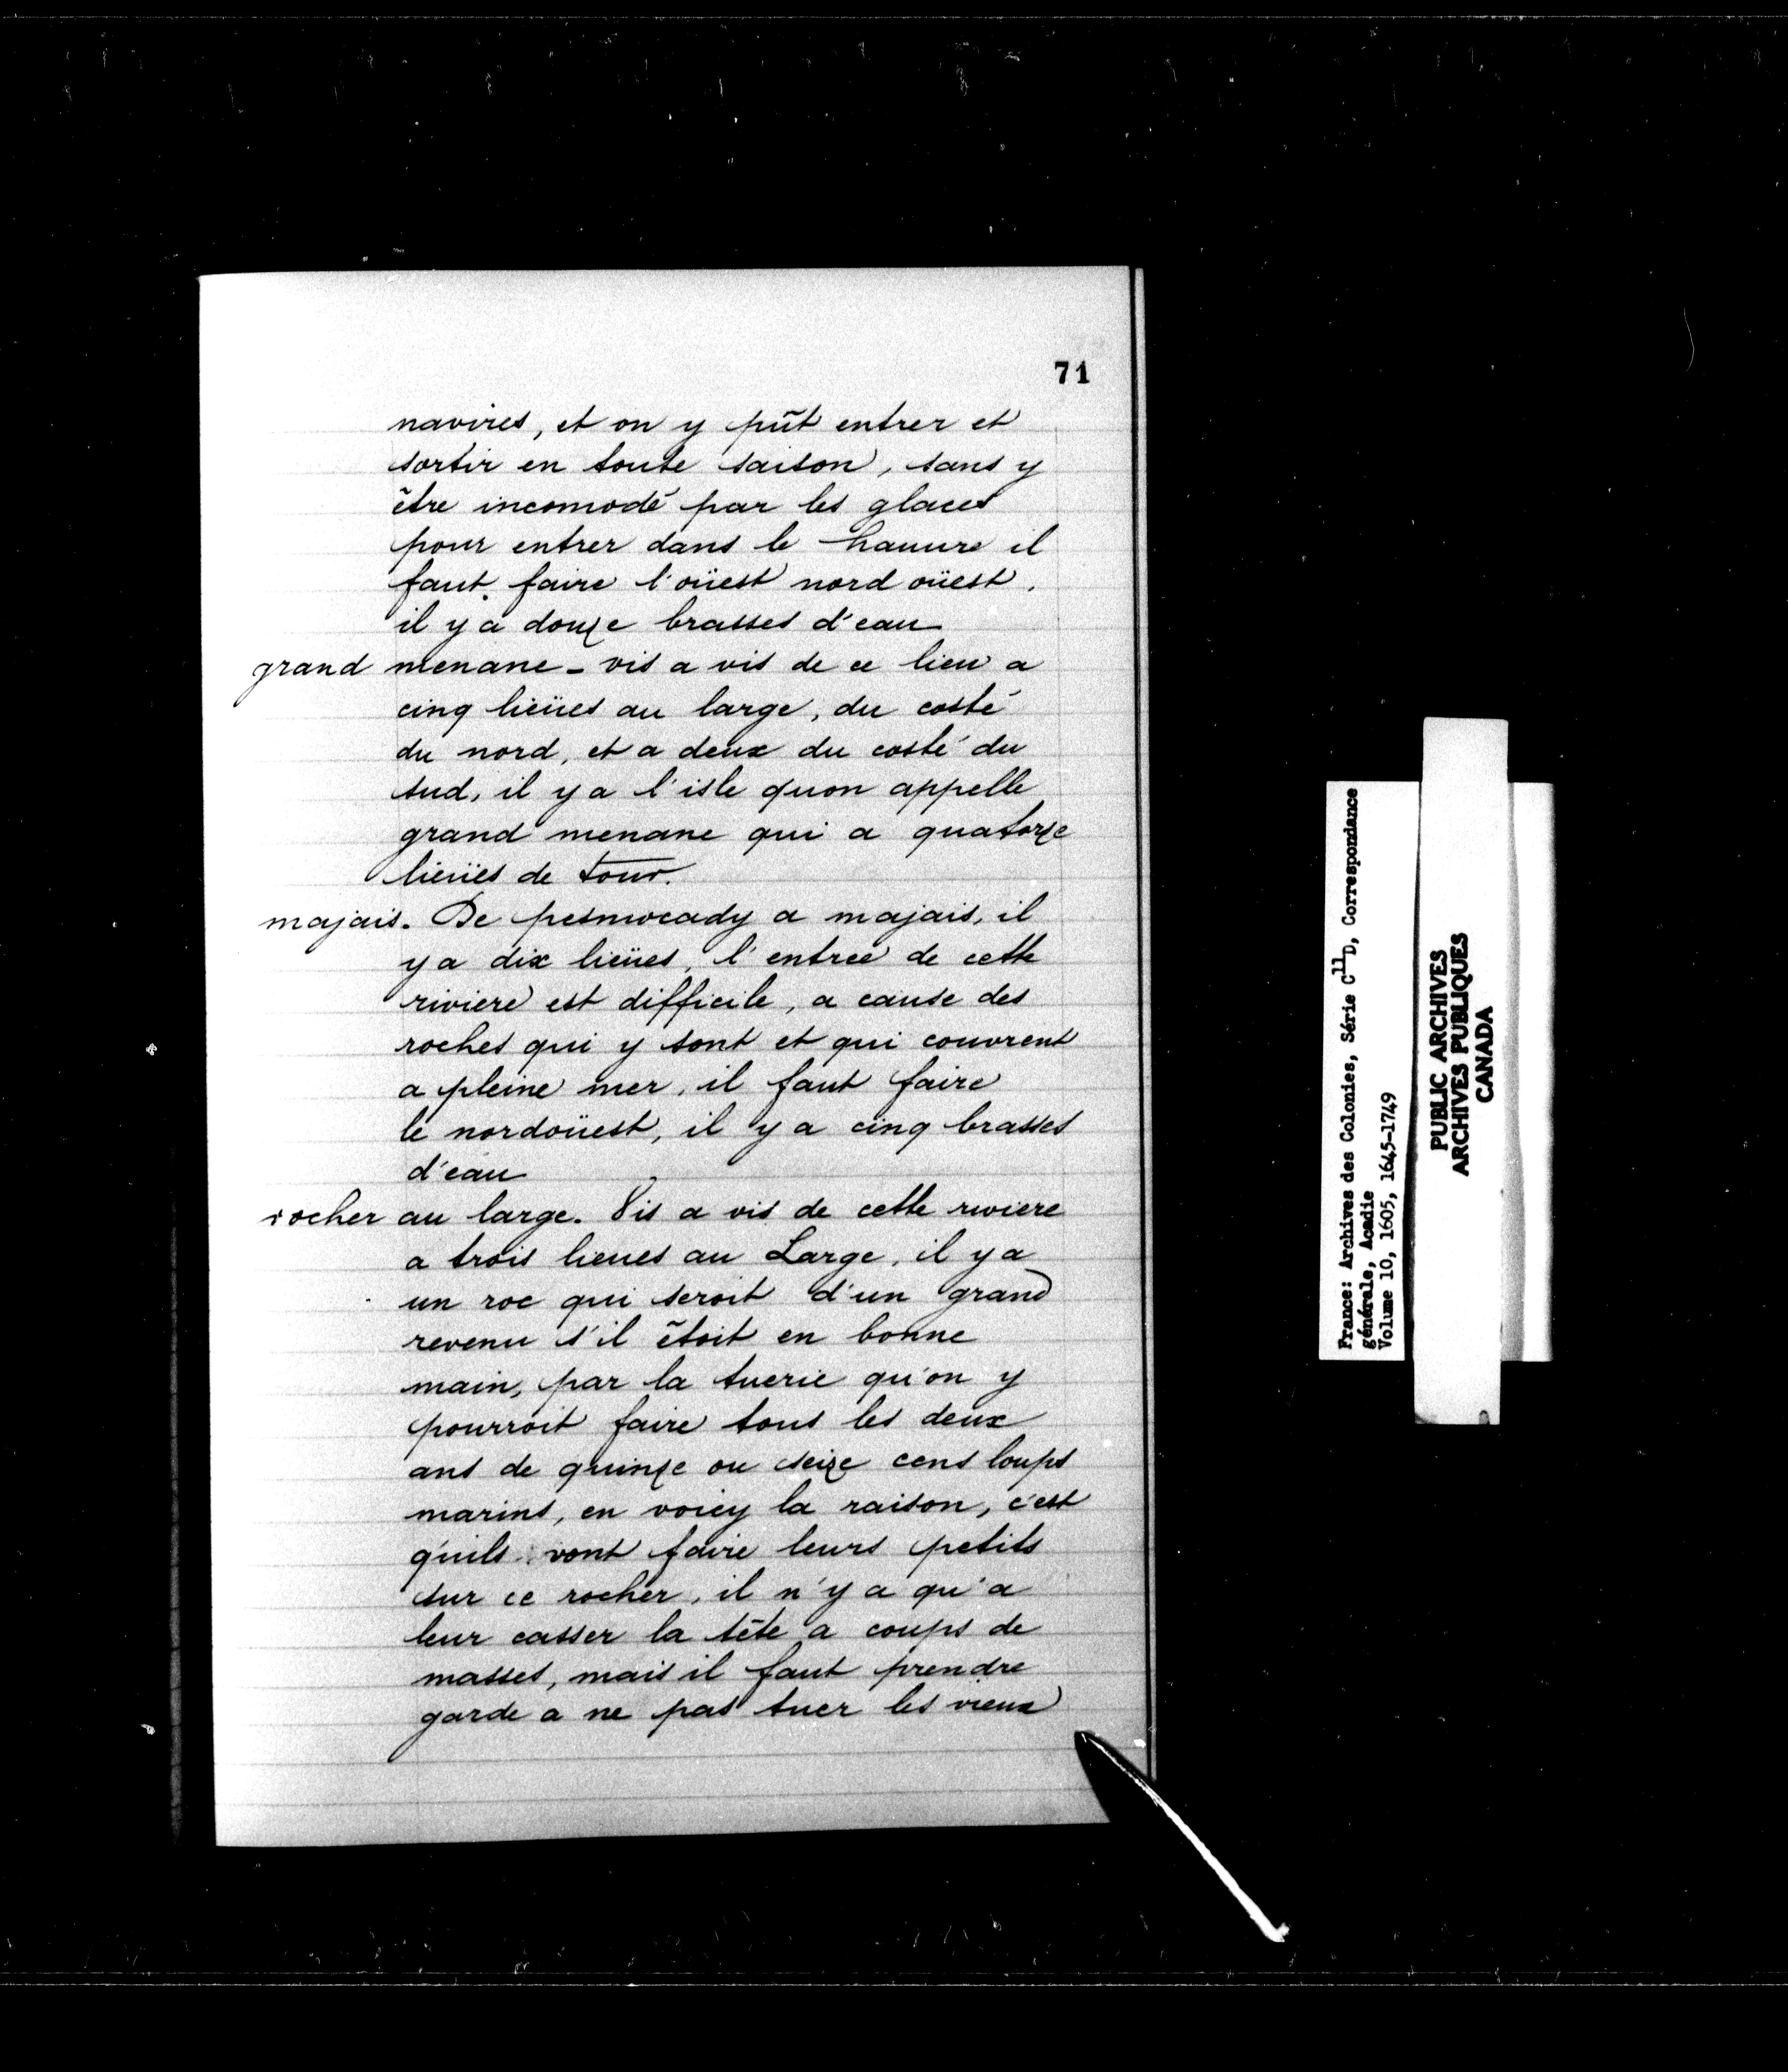 71
navires, et on y pût entrer et
sortir en toute saison, sans y
être incomodé par les glaces
pour entrer dans le hauure il
faut faire l'oüest nord oüest.
il y a douze brasses d'eau
grand menane - vis a vis de ce lieu a
cinq lieües au large, du costé
du nord, et a deux du costé du
sud, il y a l'isle quon appelle
grand menane qui a quatorze
lieües de tour.
majais. De pesmocady a majais, il
y a dix lieües, l'entreé de cette
riviere est difficile, a cause des
roches qui y sont et qui couvrent
a pleine mer, il faut faire
le nordoüest, il y a cinq brasses
d'eau
rocher au large. Vis a vis de cette riviere
a trois lieues au Large, il y a
un roc qui seroit d'un grand
revenu s'il êtoit en bonne
main, par la tuerie qu'on y
pourroit faire tous les deux
ans de quinze ou seize cens loups
marins, en voicy la raison, c'est
quils vont faire leurs petits
sur ce rocher, il n'y a qu'a
leur casser la tête a coups de
masses, mais il faut prendre
garde a ne pas tuer les vieux
France: Archives des Colonies, Série C11D, Correspondance
générale, Acadie
Volume 10, 1605, 1645-1749
PUBLIC ARCHIVES
ARCHIVES PUBLIQUES
CANADA